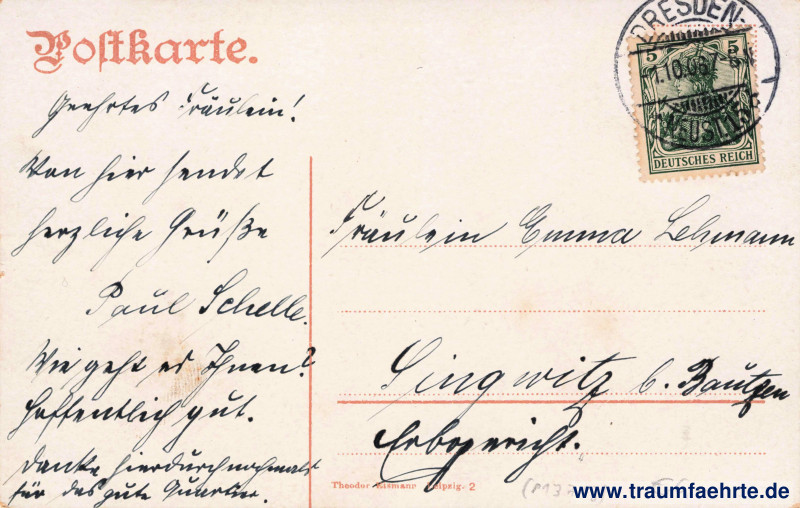 Postkarte.
DRESDEN
1.10.06.7-8N
NEUSTADT
5 5
DEUTSCHES REICH
Geehrtes Fräulein!
Von hier sendet
herzliche Grüße
Paul Schelle.
Wie geht es Ihnen?
Hoffentlich gut.
Danke hierdurch nochmals
für das gute Quartier.
Fräulein Emma Lehmann
Singwitz b. Bautzen
Erbgericht.
Theodor Eismann Leipzig. 2
www.traumfaehrte.de